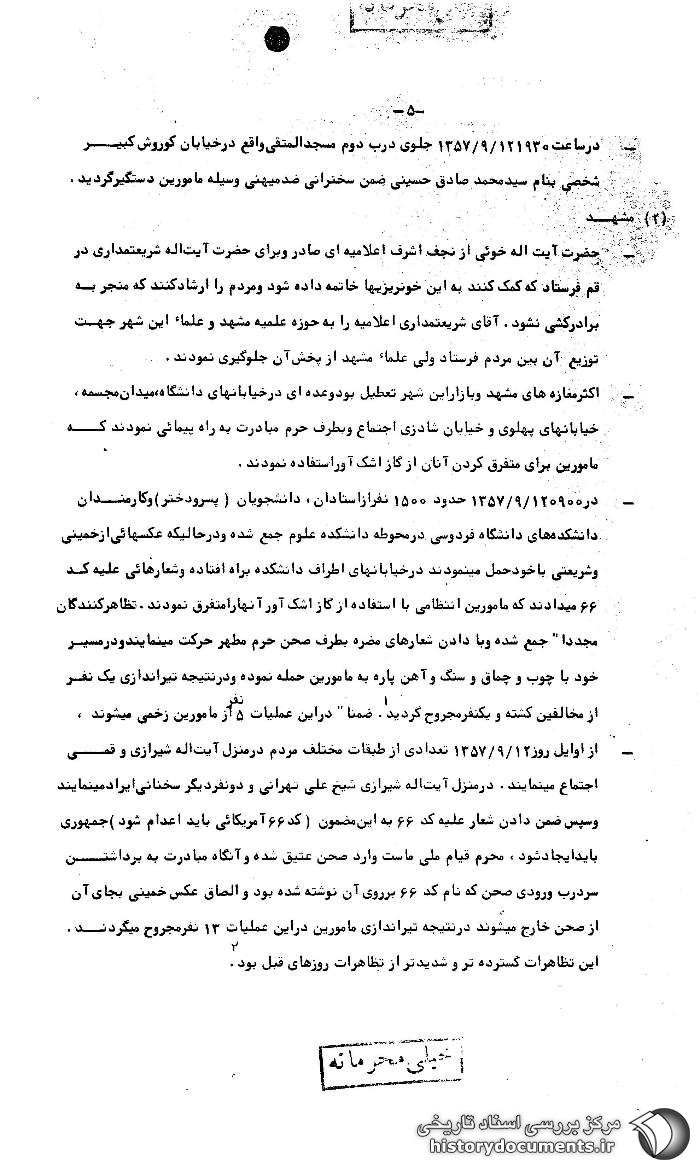 خیلی محرمانه
-۵-
- درساعت ۱۳۵۷/۹/۱۲۱۹۳۰ جلوی درب دوم مسجدالمتقی‌واقع درخیابان کوروش کبیر
شخصی بنام سیدمحمد صادق حسینی ضمن سخنرانی ضدمیهنی وسیله مامورین دستگیرگردید .
(۲) مشهد
- حضرت آیت اله خوئی از نجف اشرف اعلامیه ای صادر وبرای حضرت آیت‌اله شریعتمداری در
قم فرستاد که کمک کنند به این خونریزیها خاتمه داده شود ومردم را ارشادکنند که منجر به
برادرکشی نشود . آقای شریعتمداری اعلامیه را به حوزه علمیه مشهد و علماء این شهر جهت
توزیع آن بین مردم فرستاد ولی علماء مشهد از پخش‌آن جلوگیری نمودند .
- اکثرمغازه های مشهد وبازاراین شهر تعطیل بودوعده ای درخیابانهای دانشگاه،میدان‌مجسمه ،
خیابانهای پهلوی و خیابان شادزی اجتماع وبطرف حرم مبادرت به راه پیمائی نمودند که
مامورین برای متفرق کردن آنان از گاز اشک آوراستفاده نمودند .
- در ۱۳۵۷/۹/۱۲۰۹۰۰ حدود ۱۵۰۰ نفرازاستادان ، دانشجویان ( پسرودختر )وکارمندان
دانشکده‌های دانشگاه فردوسی درمحوطه دانشکده علوم جمع شده ودرحالیکه عکسهائی‌ازخمینی
وشریعتی باخودحمل مینمودند درخیابانهای اطراف دانشکده براه افتاده وشعارهائی علیه کد
۶۶ میدادند که مامورین انتظامی با استفاده از گاز اشک آور آنهارامتفرق نمودند .تظاهرکنندگان
مجددا" جمع شده وبا دادن شعارهای مضره بطرف صحن حرم مطهر حرکت مینمایندودرمسیر
خود با چوب و چماق و سنگ و آهن پاره به مامورین حمله نموده ودرنتیجه تیراندازی یک نفر
از مخالفین کشته و یکنفرمجروح گردید۱ . ضمنا" دراین عملیات ۵ نفر از مامورین زخمی میشوند ،
- از اوایل روز۱۳۵۷/۹/۱۲ تعدادی از طبقات مختلف مردم درمنزل آیت‌اله شیرازی و قمی
اجتماع مینمایند . درمنزل آیت‌اله شیرازی شیخ علی تهرانی و دونفردیگر سخنانی‌ایرادمینمایند
وسپس ضمن دادن شعار علیه کد ۶۶ به این‌مضمون ( کد ۶۶ آمریکائی باید اعدام شود )جمهوری
بایدایجادشود ، محرم قیام ملی ماست وارد صحن عتیق شده و آنگاه مبادرت به برداشتن
سردرب ورودی صحن که نام کد ۶۶ برروی آن نوشته شده بود و الصاق عکس خمینی بجای آن
از صحن خارج میشوند درنتیجه تیراندازی مامورین دراین عملیات ۱۳ نفرمجروح میگردند .
این تظاهرات گسترده تر و شدیدتر از تظاهرات روزهای قبل بود۲ .
خیلی محرمانه
مرکز بررسی اسناد تاریخی
historydocuments.ir